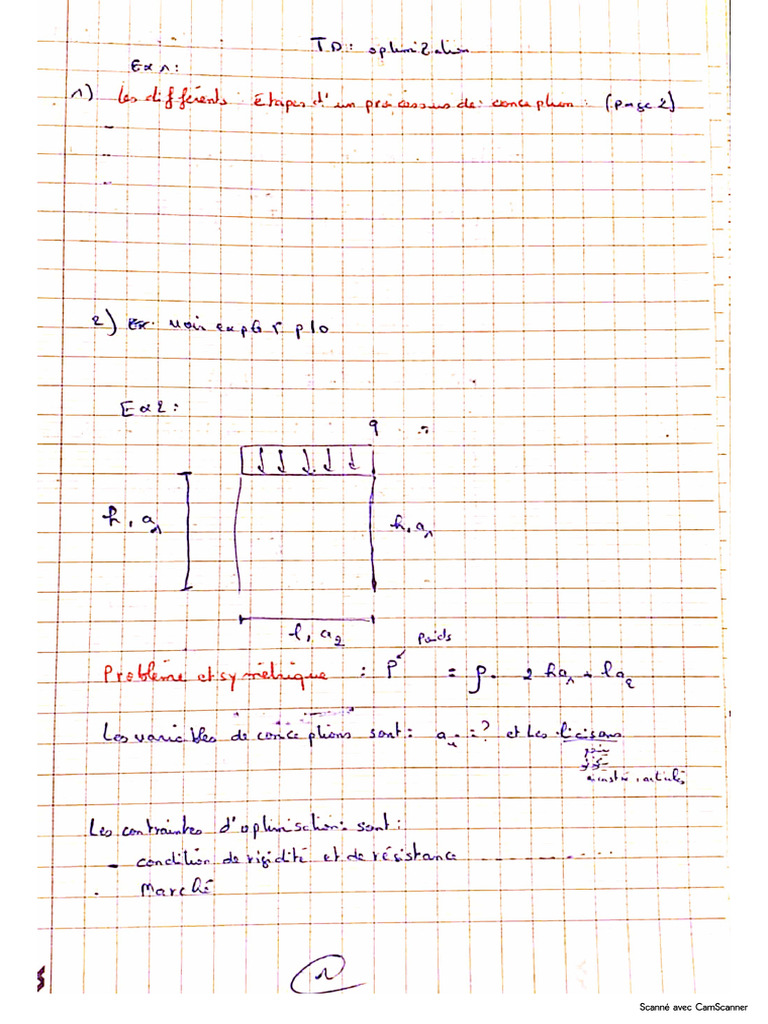 TD: optimization
Ex 1:
1) Les différents étapes d'un processus de: conception: (page 2)
-
-
-
2) Ex: voir exp p10
Ex 2:
q
h, a1
h, a1
l, a2
Poids
Problème et symétrique : P = ρ. 2 h a1 + l a2
Les variables de conceptions sont: =? et les liaisons
Les contraintes d'optimisation: sont:
- condition de rigidité et de résistance ..........
. Marché
1
Scanné avec CamScanner